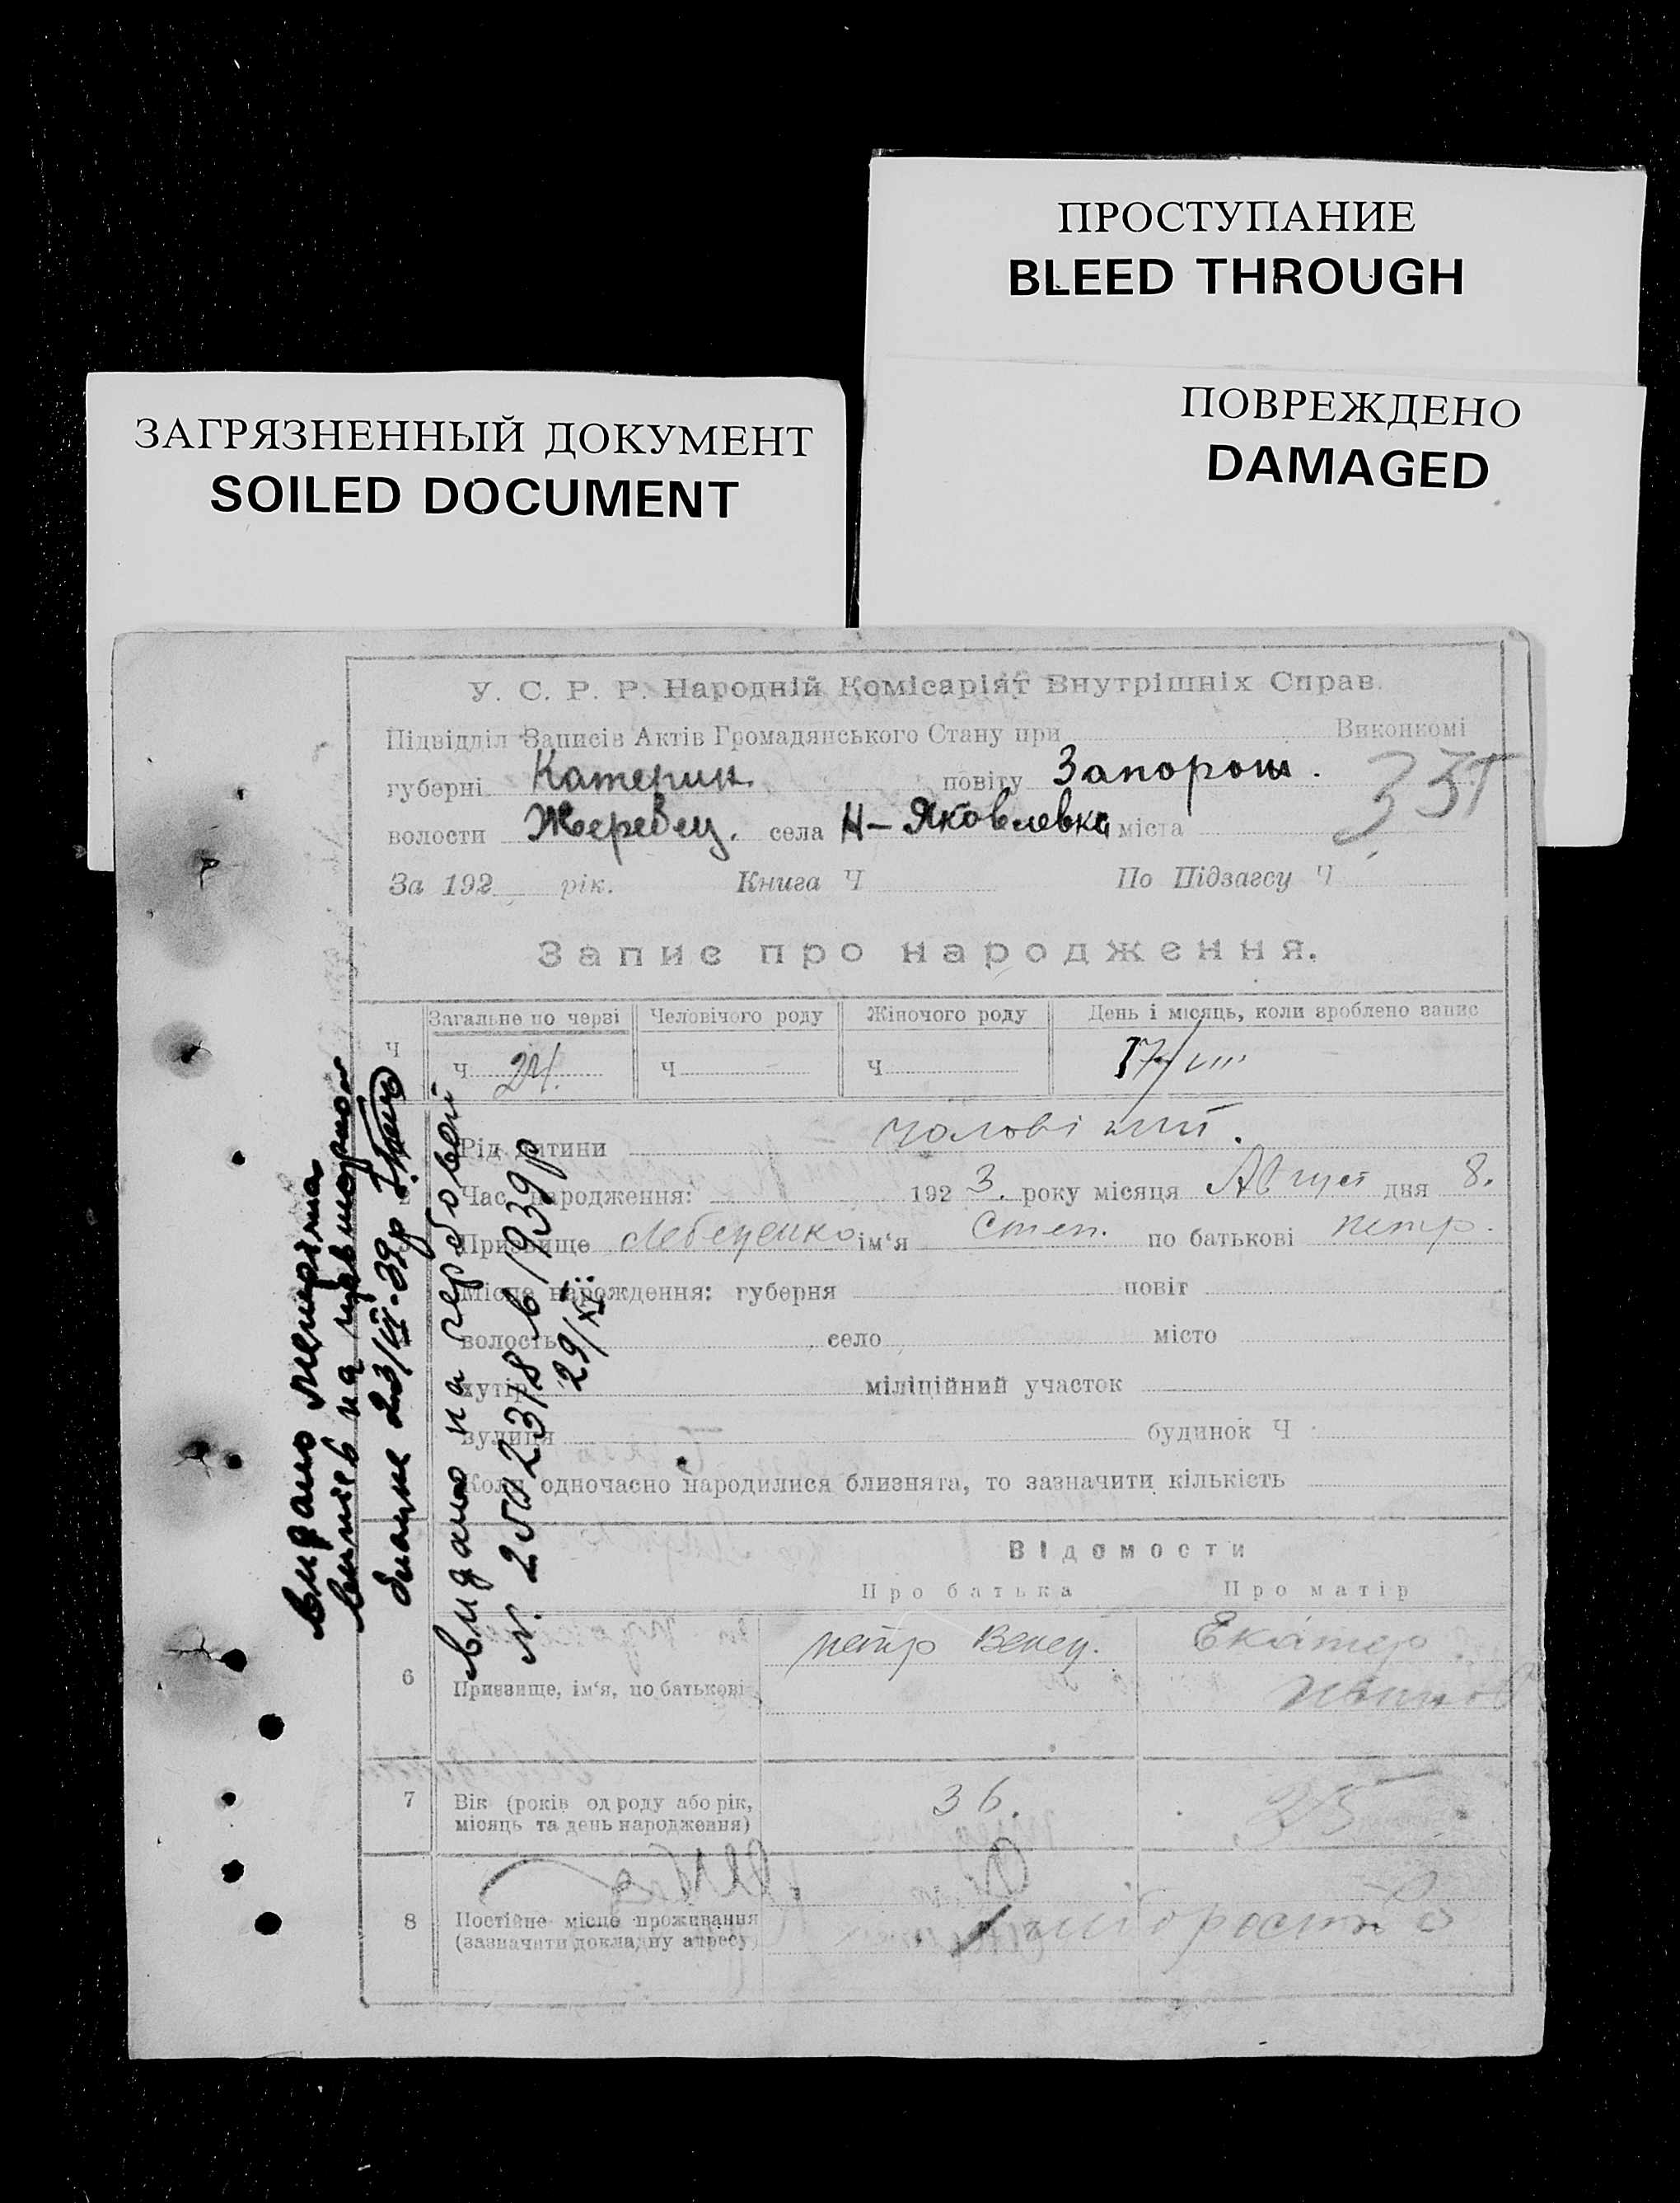 ПРОСТУПАНИЕ
BLEED THROUGH
ПОВРЕЖДЕНО
DAMAGED
ЗАГРЯЗНЕННЫЙ ДОКУМЕНТ
SOILED DOCUMENT
У. С. Р. Р. Народній Комісаріят Внутрішніх Справ.
Підвідділ Записів Актів Громадянського Стану при Виконкомі
губерні Катерин. повіту Запорош.
335
волости Жеребец. села Н-Яковлевка міста
За 192 рік. Книга Ч По Підзагсу Ч
Запис про народження.
Загальне по черзі Человічого роду Жіночого роду День і місяць, коли зроблено запис
Ч Ч 24. Ч Ч 17/VIII
Рід дитини чоловічий.
Час народження: 192 3. року місяця Август дня 8.
Призвище ім‘я Степ. по батькові петр.
Місце народження: губерня повіт
волость село місто
хутір міліційний участок
вулиця будинок Ч
Коли одночасно народилися близнята, то зазначити кількість
Відомости
Про батька Про матір
6 Призвище, ім‘я, по батькові петр Екатер
7 Вік (років од роду або рік, місяць та день народження) 36. 35
8 Постійне місце проживання (зазначити докладну адресу)
видано
на
23/VI-39р
видано на гербовой
N. 250123/8 в/939р
29/XI